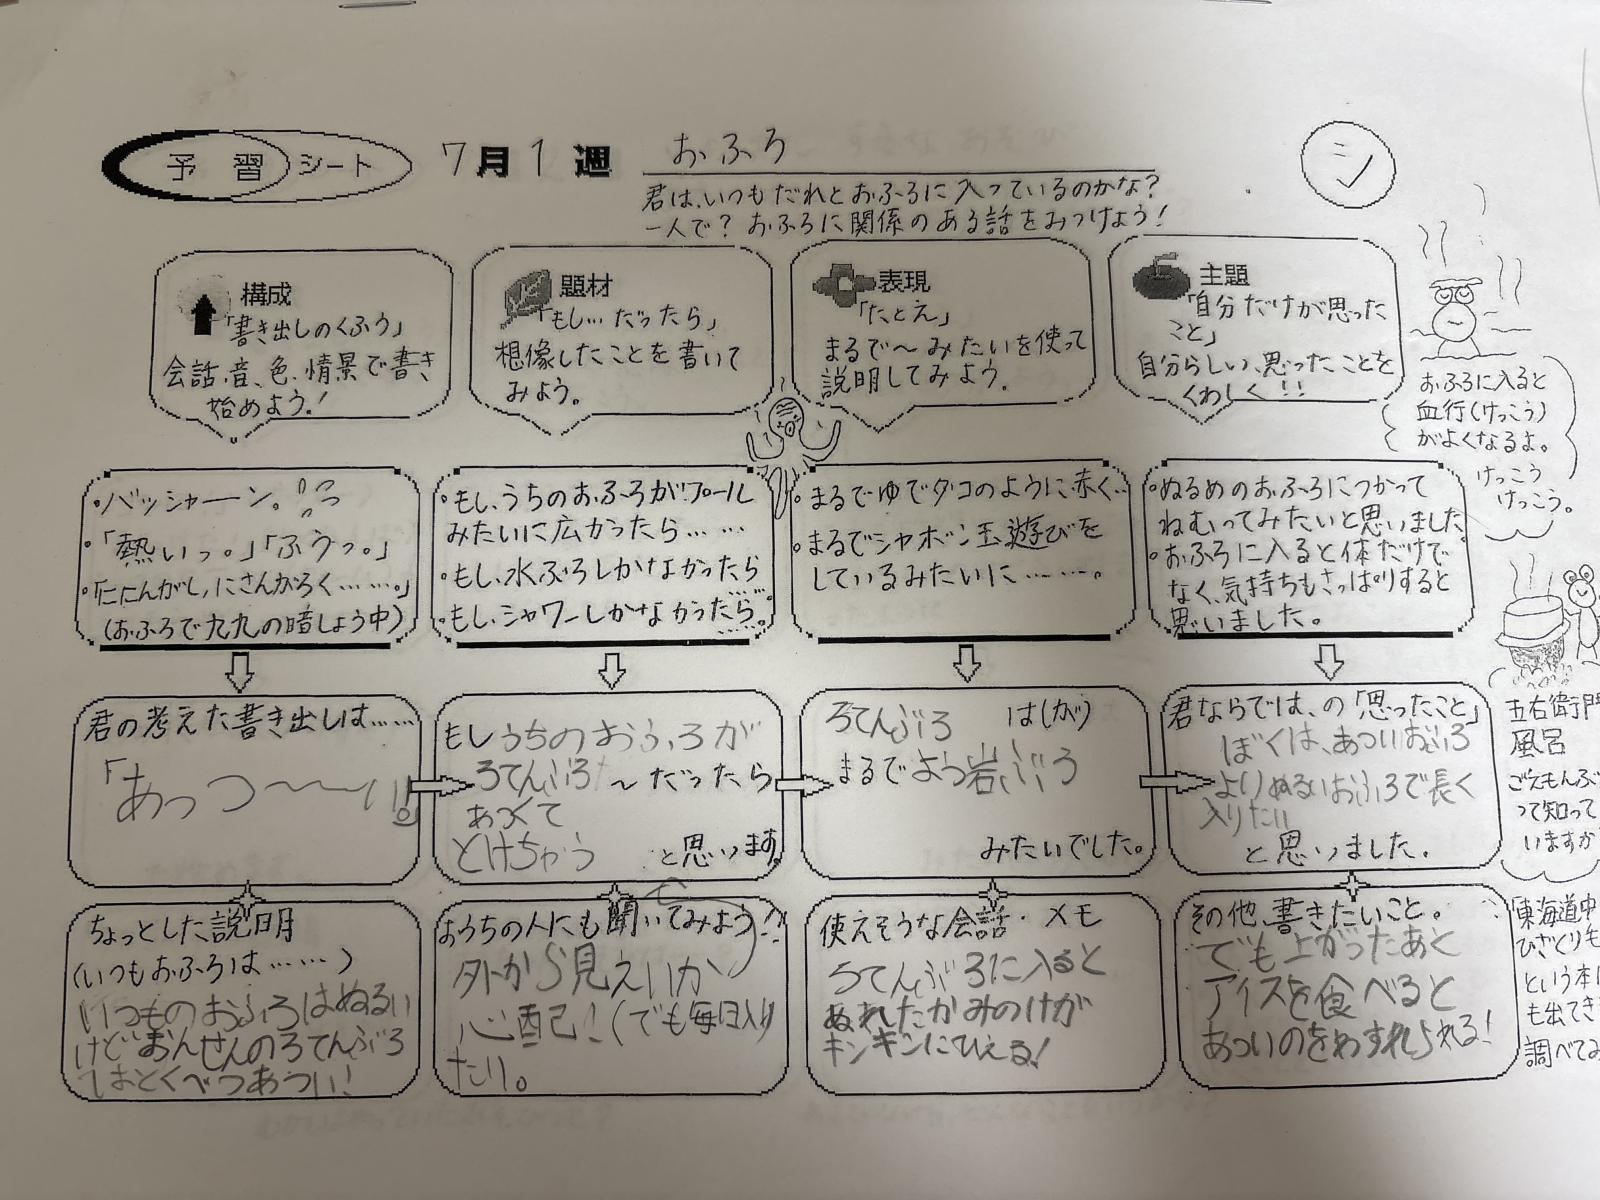 予習シート 7月1週 おふろ
シ
君は、いつもだれとおふろに入っているのかな?
一人で?おふろに関係のある話をみつけよう!
構成
「書き出しのくふう」
会話、音、色、情景で書き
始めよう!
題材
「もし…だったら」
想像したことを書いて
みよう。
表現
「たとえ」
まるで〜みたいを使って
説明してみよう。
主題
「自分だけが思った
こと」
自分らしい、思ったことを
くわしく!!
おふろに入ると
血行(けっこう)
がよくなるよ。
けっこう
けっこう。
・バッシャーーン。
・「熱いっ。」「ふうっ。」
・「ににんがし,にさんがろく……。」
(おふろで九九の暗しょう中)
・もし、うちのおふろがプール
みたいに広かったら……
・もし、水ぶろしかなかったら……
・もし、シャワーしかなかったら……。
・まるでゆでダコのように赤く…
・まるでシャボン玉遊びを
しているみたいに……。
・ぬるめのおふろにつかって
ねむってみたいと思いました
・おふろに入ると体だけで
なく、気持ちもさっぱりすると
思いました。
君の考えた書き出しは……
「あっつ〜〜い!!」
もしうちのおふろが
ろてんぶろ 〜だったら
あつくて
とけちゃう
と思います。
ろてんぶろ は(が)
まるでよう岩ぶろ
みたいでした。
君ならでは、の「思ったこと」
ぼくは、あついおふろ
よりぬるいおふろで長く
入りたい
と思いました。
五右衛門
風呂
ごえもんぶ
って知って
いますか
ちょっとした説明
(いつもおふろは……)
いつものおふろはぬるい
けどおんせんのろてんぶろ
はとくべつあつい!
おうちの人にも聞いてみよう!!
外から見えいか
も
心配!(でも毎日入り
たい)。
使えそうな会話・メモ
ろてんぶろに入ると
ぬれたかみのけが
キンキンにひえる!
その他、書きたいこと。
でも上がったあと
アイスを食べると
あついのをわすれられる!
「東海道中
ひざくりも
という本に
も出てき
調べてみ